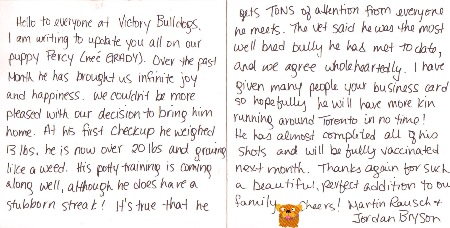 Hello to everyone at Victory Bulldogs.
I am writing to update you all on our
puppy Percy (neé GRADY). Over the past
month he has brought us infinite joy
and happiness. We couldn't be more
pleased with our decision to bring him
home. At his first checkup he weighed
13 lbs. he is now over 20 lbs and growing
like a weed. His potty training is coming
along well, although he does have a
stubborn streak! It's true that he
gets TONS of attention from everyone
he meets. The vet said he was the most
well bred bully he has met to date,
and we agree wholeheartedly. I have
given many people your business card
so hopefully he will have more kin
running around Toronto in no time!
He has almost completed all of his
shots and will be fully vaccinated
next month. Thanks again for such
a beautiful, perfect addition to our
family. Cheers! Martin Rausch +
Jordan Bryson